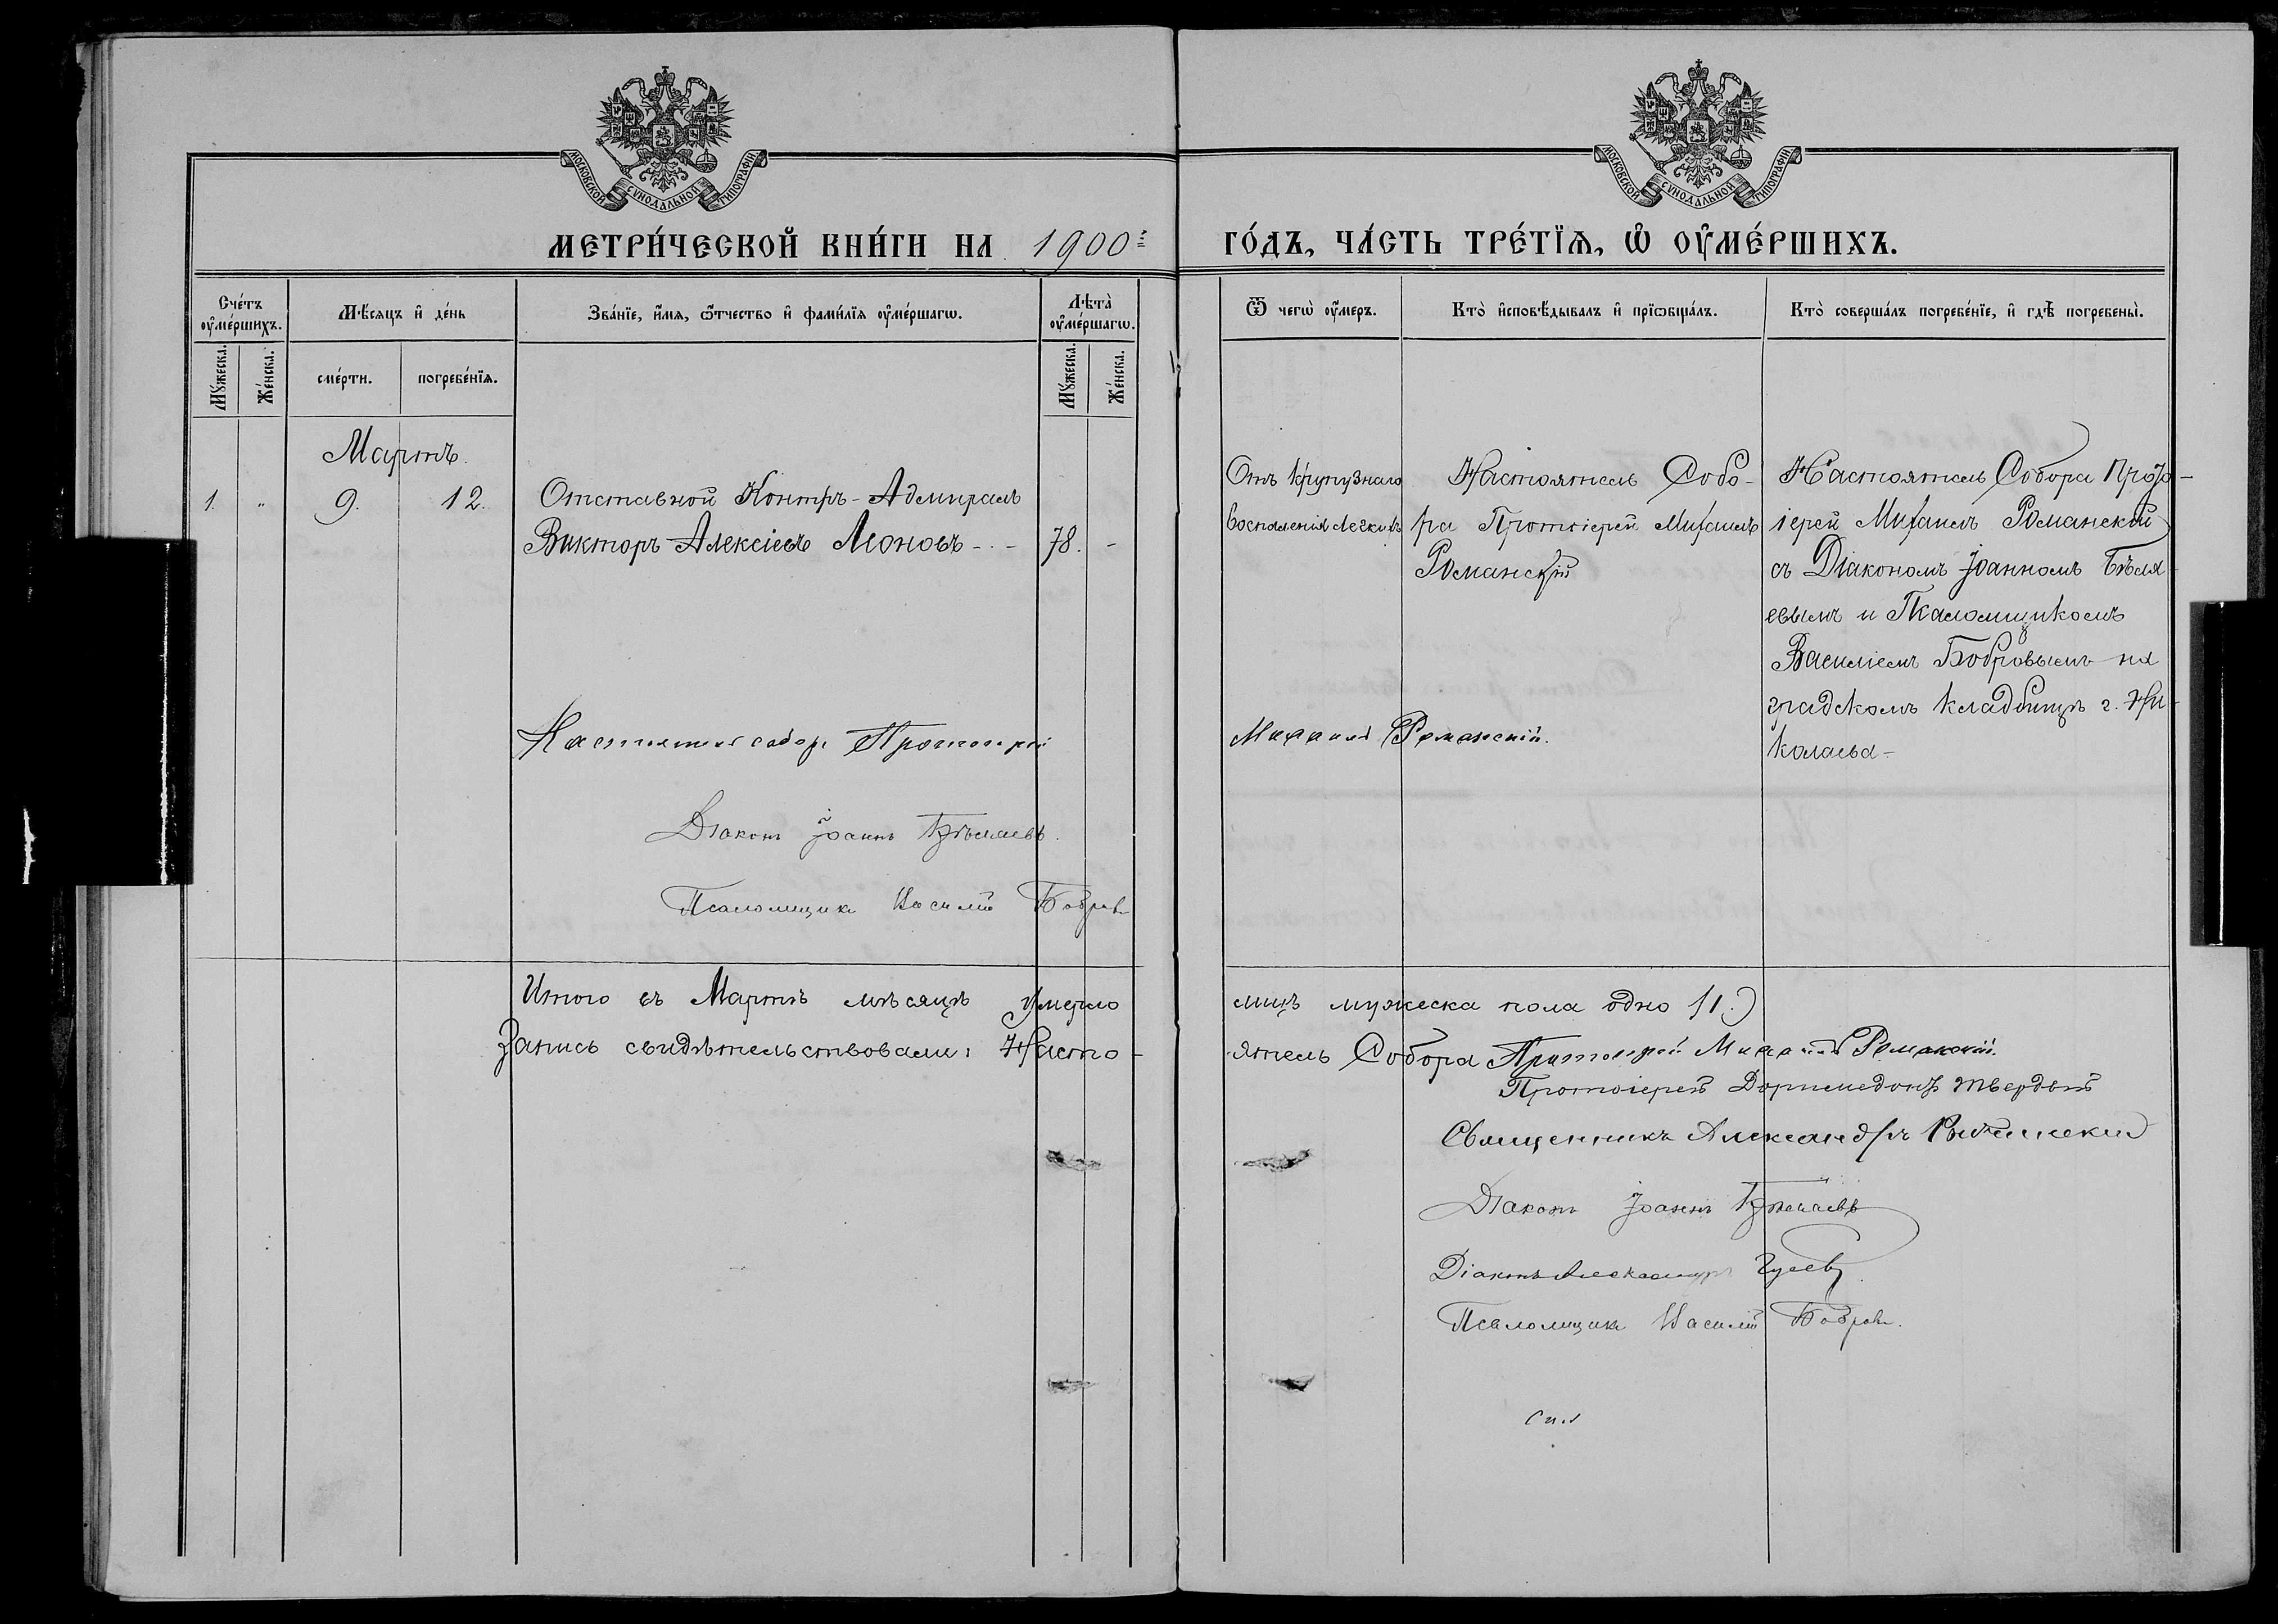 МОСКОВСКОЙ СѴНОДАЛЬНОЙ ТИПОГРАФІИ
МОСКОВСКОЙ СѴНОДАЛЬНОЙ ТИПОГРАФІИ
МЕТРИ́ЧЕСКОЙ КНИ́ГИ НА 1900й
ГО́ДЪ, ЧА́СТЬ ТРЕ́ТЇѦ, Ѡ҆ ОУ҆МЕ́РШИХЪ.
Сче́тъ оу҆ме́ршихъ.
Мѣ́сяцъ и҆ де́нь
Зва́нїе, и҆́мя, ѻ҆́тчество и҆ фами́лїя оу҆ме́ршагѡ.
Лѣта̀ оу҆ме́ршагѡ.
Ѿ чегѡ̀ оу҆́меръ.
Кто̀ и҆сповѣ́дывалъ и҆ прїѡбща́лъ.
Кто̀ соверша́лъ погребе́нїе, и҆ гдѣ̀ погребены̀.
Мꙋ́жеска.
Же́нска.
сме́рти.
погребе́нїя.
Мꙋ́жеска.
Же́нска.
Мартъ.
1. " 9. 12.
Отставной Контръ-Адмиралъ
Викторъ Алексіевъ Леоновъ - - 78. -
Отъ Крупознаго
воспаленія легкихъ
Настоятель Собо-
ра Протоіерей Михаилъ
Романскій
Настоятель Собора Прото-
іерей Михаилъ Романскій
съ Діакономъ Іоанномъ Бѣля-
евымъ и Псаломщикомъ
Василіемъ Бобровымъ на
градскомъ кладбищѣ г. Ни-
колаева -
Настоятель собора Протоіерей Михаилъ Романскій.
Діаконъ Іоаннъ Бѣляевъ.
Псаломщикъ Василій Бобровъ
Итого въ Мартѣ мѣсяцѣ умерло лицъ мужеска пола одно (1.)
Запись свидѣтельствовали: Насто-
ятель Собора Протоіерей Михаилъ Романскій.
Протоіерей Доримедонтъ Твердый
Священникъ Александръ
Діаконъ Іоаннъ Бѣляевъ
Діаконъ Александръ Гусевъ
Псаломщикъ Василій Бобровъ.